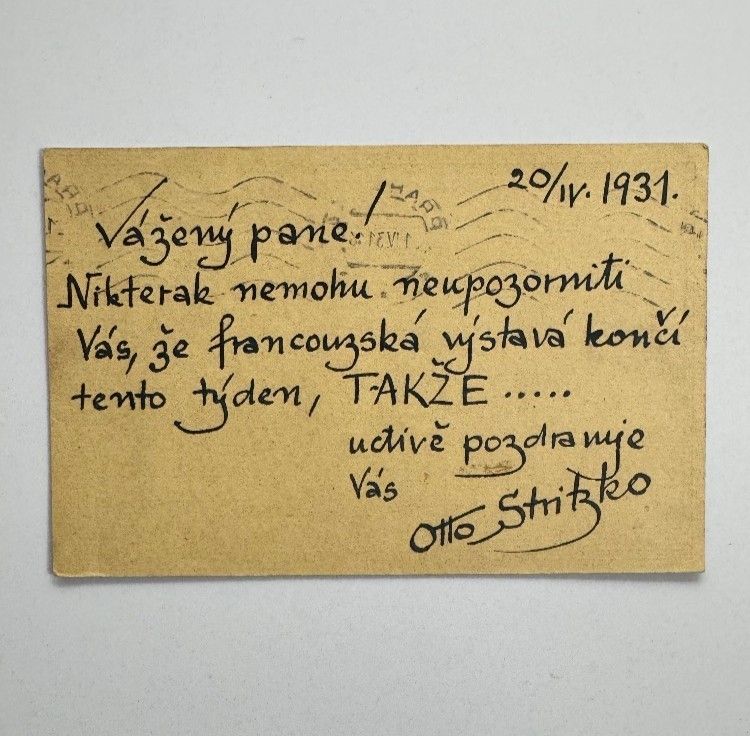 20/IV. 1931.
Vážený pane!
Nikterak nemohu neupozorniti
Vás, že francouzská výstavá končí
tento týden, TAKŽE .....
uctivě pozdravuje
Vás
Otto Stritzko